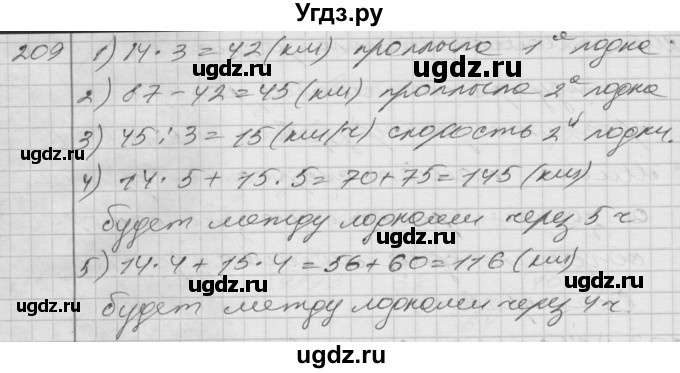 Угдз.ру
209 1) 14 · 3 = 42 (км) проплыла 1ая лодка.
2) 87 - 42 = 45 (км) проплыла 2а лодка
3) 45 : 3 = 15 (км/ч) скорость 2й лодки.
4) 14 · 5 + 15 · 5 = 70 + 75 = 145 (км)
будет между лодками через 5 ч
5) 14 · 4 + 15 · 4 = 56 + 60 = 116 (км)
будет между лодками через 4 ч.
ugdz.ru
ugdz.ru
ugdz.ru
ugdz.ru
ugdz.ru
ugdz.ru
ugdz.ru
ugdz.ru
ugdz.ru
ugdz.ru
ugdz.ru
ugdz.ru
ugdz.ru